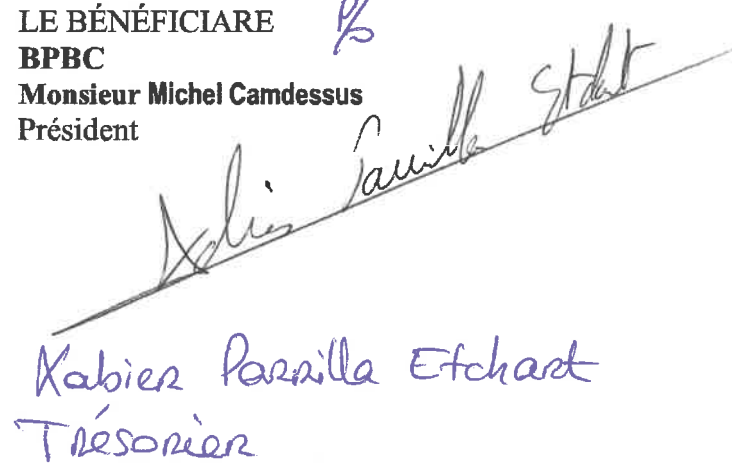 LE BÉNÉFICIARE P/o
BPBC
Monsieur Michel Camdessus
Président
Xabier Parrilla Etchart
Xabier Parrilla Etchart
Trésorier